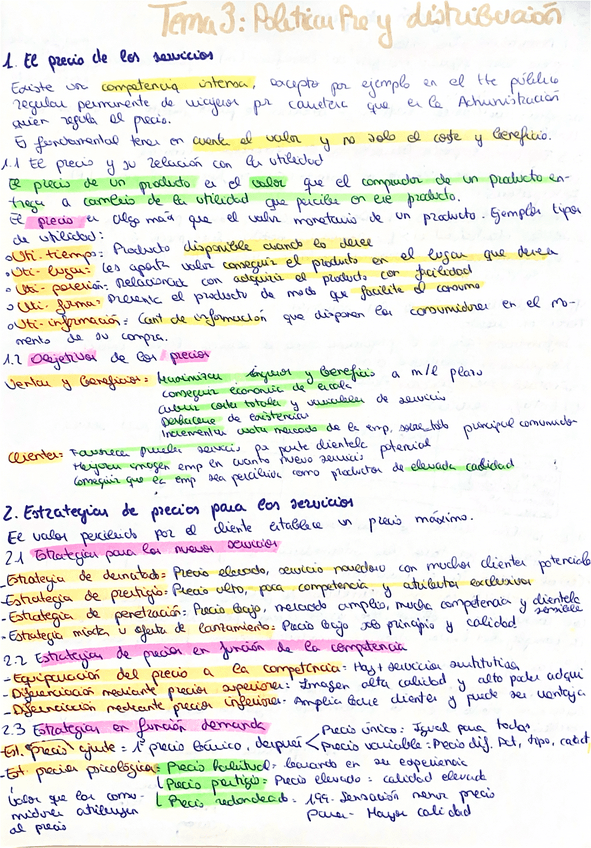 Tema 3: Politicas Pre y distribución
1. El precio de los servicios
Existe una competencia intensa, excepto por ejemplo en el tte público
regular permanente de viajeros por carretera que es la Administración
quien regula el precio.
Es fundamental tener en cuenta el valor y no solo el coste y beneficio.
1.1 El precio y su relación con la utilidad
El precio de un producto es el valor que el comprador de un producto en-
trega a cambio de la utilidad que percibe en ese producto.
El precio es algo más que el valor monetario de un producto. Ejemplos tipos
de utilidad:
Uti- tiempo: Producto disponible cuando lo desee
Uti- lugar: Les aporta valor conseguir el producto en el lugar que desea
Uti- posesión: Relacionada con adquirir el producto con facilidad
Uti- forma: Presente el producto de modo que facilite el consumo
Uti- información: Cant de información que disponen los consumidores en el mo-
mento de su compra.
1.2 Objetivos de los precios
Ventas y beneficios: Maximizar ingresos y beneficio a m/l plazo
conseguir economías de escala
Cubrir costes totales y variables de servicio
Deshacerse de existencias
Incrementar cuota mercado de la emp, sobre todo principal consumidor
Clientes: Favorecer prueba servicio por parte clientela potencial
Mejorar imagen emp en cuanto nuevo servicio
Conseguir que la emp sea percibida como productor de elevada calidad
2. Estrategias de precios para los servicios
El valor percibido por el cliente establece un precio máximo.
2.1 Estrategias para los nuevos servicios
-Estrategia de desnatado: Precio elevado, servicio novedoso con muchos clientes potenciales
-Estrategia de prestigio: Precio alto, poca competencia y atributos exclusivos
-Estrategia de penetración: Precio bajo, mercado amplio, mucha competencia y clientela sensible
-Estrategia mixta u oferta de lanzamiento: Precio bajo principio y calidad
2.2 Estrategias de precios en función de la competencia
-Equiparación del precio a la competencia: Hay servicios sustitutivos
-Diferenciación mediante precios superiores: Imagen alta calidad y alto poder adqui
-Diferenciación mediante precios inferiores: Amplia base clientes y puede ser ventaja
2.3 Estrategias en función demanda
-Est. Precio ajuste = 1º precio básico, después
Precio único: Igual para todos
Precio variable: Precio dif. Act, tipo, catct
-Est precios psicológicos: Precio habitual: basando en su experiencia
Precio prestigio: Precio elevado: calidad elevada
Precio redondeado: 199- Sensación menor precio
Valor que los consu-
midores atribuyen
al precio
Mayor calidad